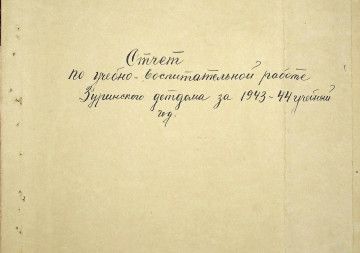 Отчет
по учебно-воспитательной работе
Зуринского детдома за 1943-44 учебный
год.